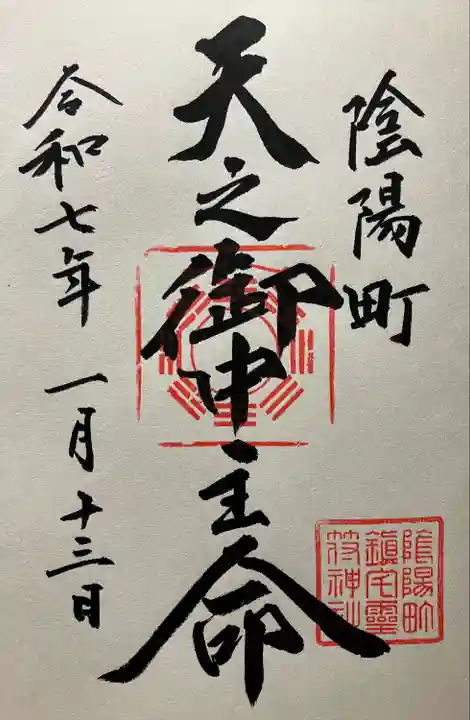 陰陽町
天之御中主命
令和七年 一月十三日
陰陽町
鎮宅靈
符神社